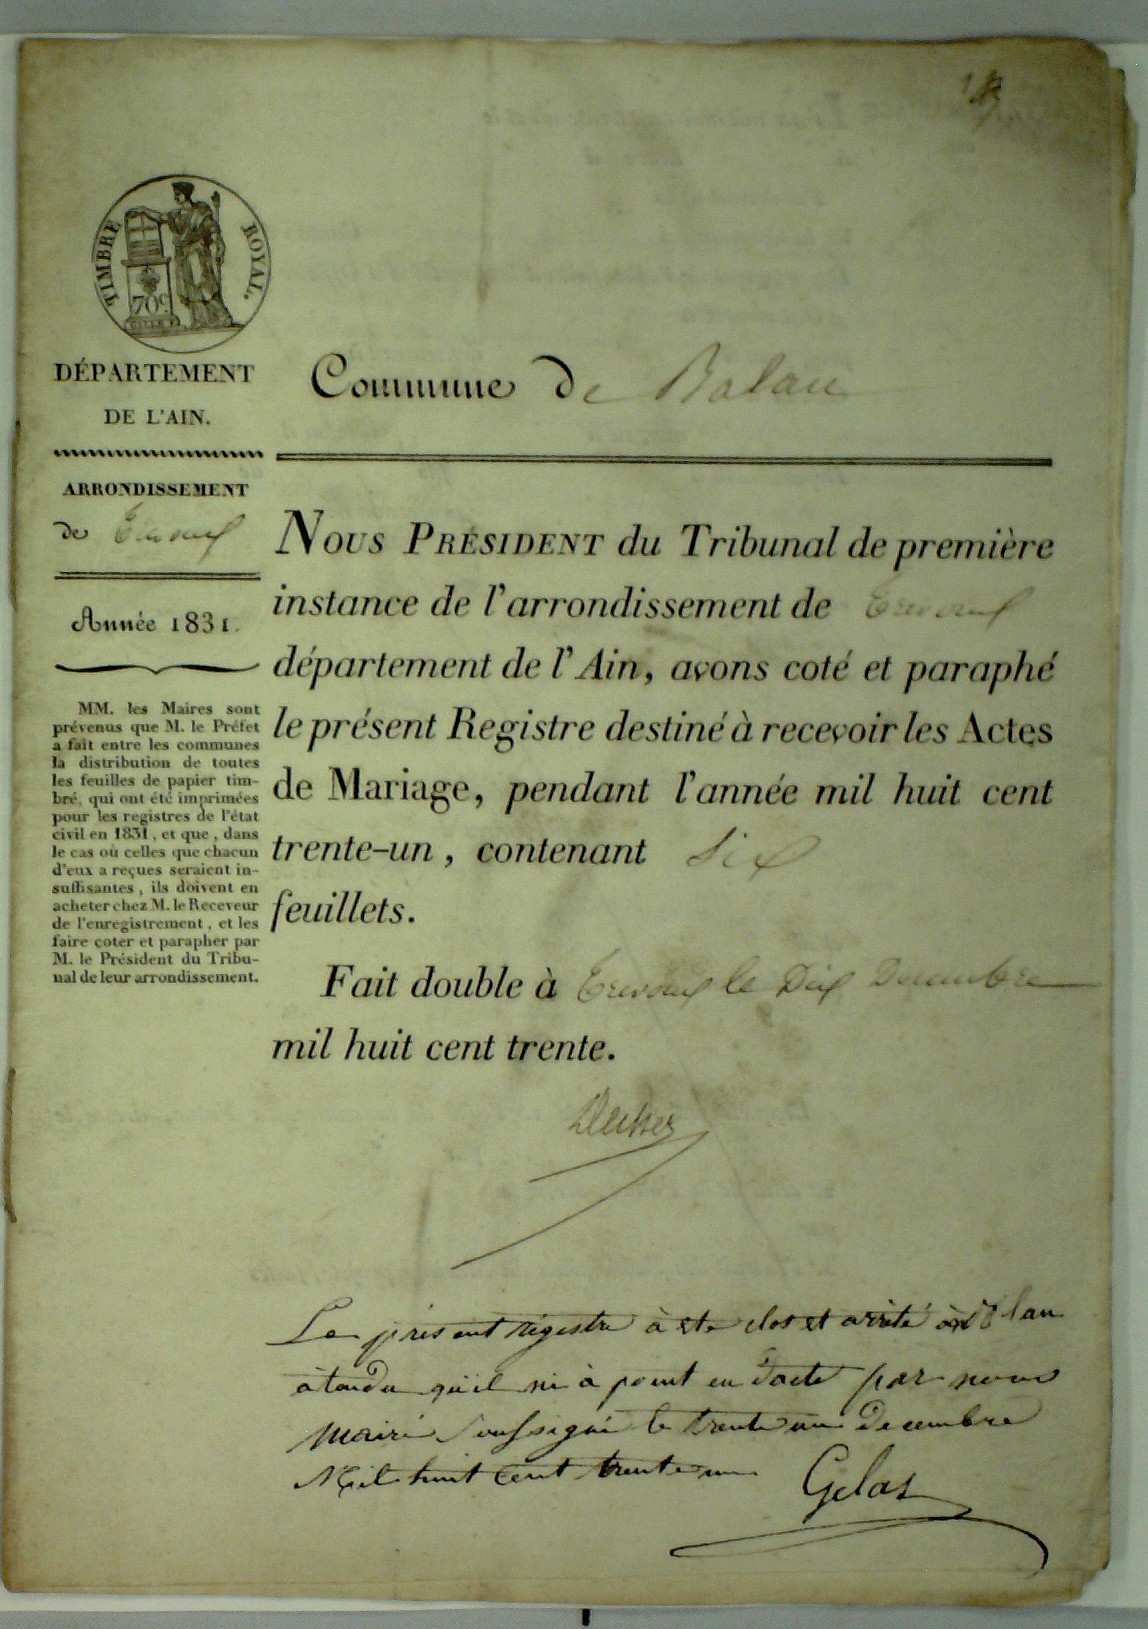 TIMBRE ROYAL.
70c
DÉPARTEMENT
DE L'AIN.
Commune de Balan
ARRONDISSEMENT
de Trevoux
Année 1831.
MM. les Maires sont
prévenus que M. le Préfet
a fait entre les communes
la distribution de toutes
les feuilles de papier tim-
bré, qui ont été imprimées
pour les registres de l'état
civil en 1831, et que, dans
le cas où celles que chacun
d'eux a reçues seraient in-
suffisantes, ils doivent en
acheter chez M. le Receveur
de l'enregistrement, et les
faire coter et parapher par
M. le Président du Tribu-
nal de leur arrondissement.
NOUS PRÉSIDENT du Tribunal de première
instance de l'arrondissement de Trevoux
département de l'Ain, avons coté et paraphé
le présent Registre destiné à recevoir les Actes
de Mariage, pendant l'année mil huit cent
trente-un, contenant Six
feuillets.
Fait double à Trevoux le Dix Decembre
mil huit cent trente.
Le present régistre à ete clos et arrité à Balan
àtendu qu'il ni à point eu d'acte par nous
Maire Soussigné le trente un Decembre
Mil huit Cent trente un
Gelas